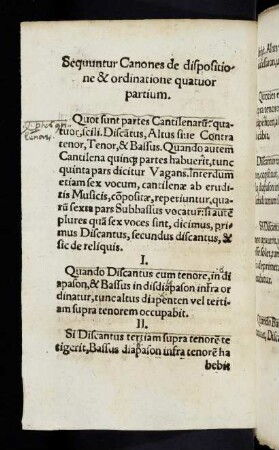 Sequuntur Canones de dispositio-
ne & ordinatione quatuor
partium.
Quot sunt partes Cantilenarū: qua-
tuor, scili. Discātus, Altus siue Contra
tenor, Tenor, & Bassus. Quando autem
Cantilena quinqȝ partes habuerit, tunc
quinta pars dicitur Vagans. Interdum
etiam sex vocum, cantilenæ ab erudi-
tis Musicis, cōpositæ, reperiuntur, qua-
rū sexta pars Subbassus vocatur: si autē
plures quā sex voces sint, dicimus, pri-
mus Discantus, secundus discantus, &
sic de reliquis.
I.
Quando Discantus cum tenore, in di
apason, & Bassus in disdiapason infra or
dinatur, tunc altus diapenten vel terti-
am supra tenorem occupabit.
II.
Si Discantus tertiam supra tenorē te
tigerit, Bassus diapason infra tenorē ha
bebit